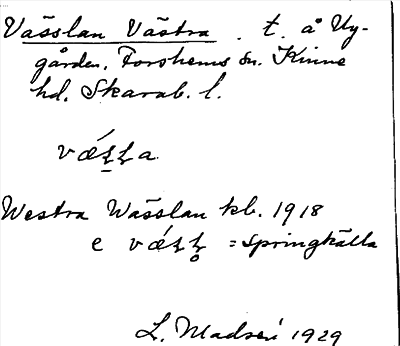 Vässlan Västra. t. å Ny-
gården. Forshems sn. Kinne
hd. Skarab. l.
Westra Wässlan kb. 1918
= springkälla
L. Madsén 1929